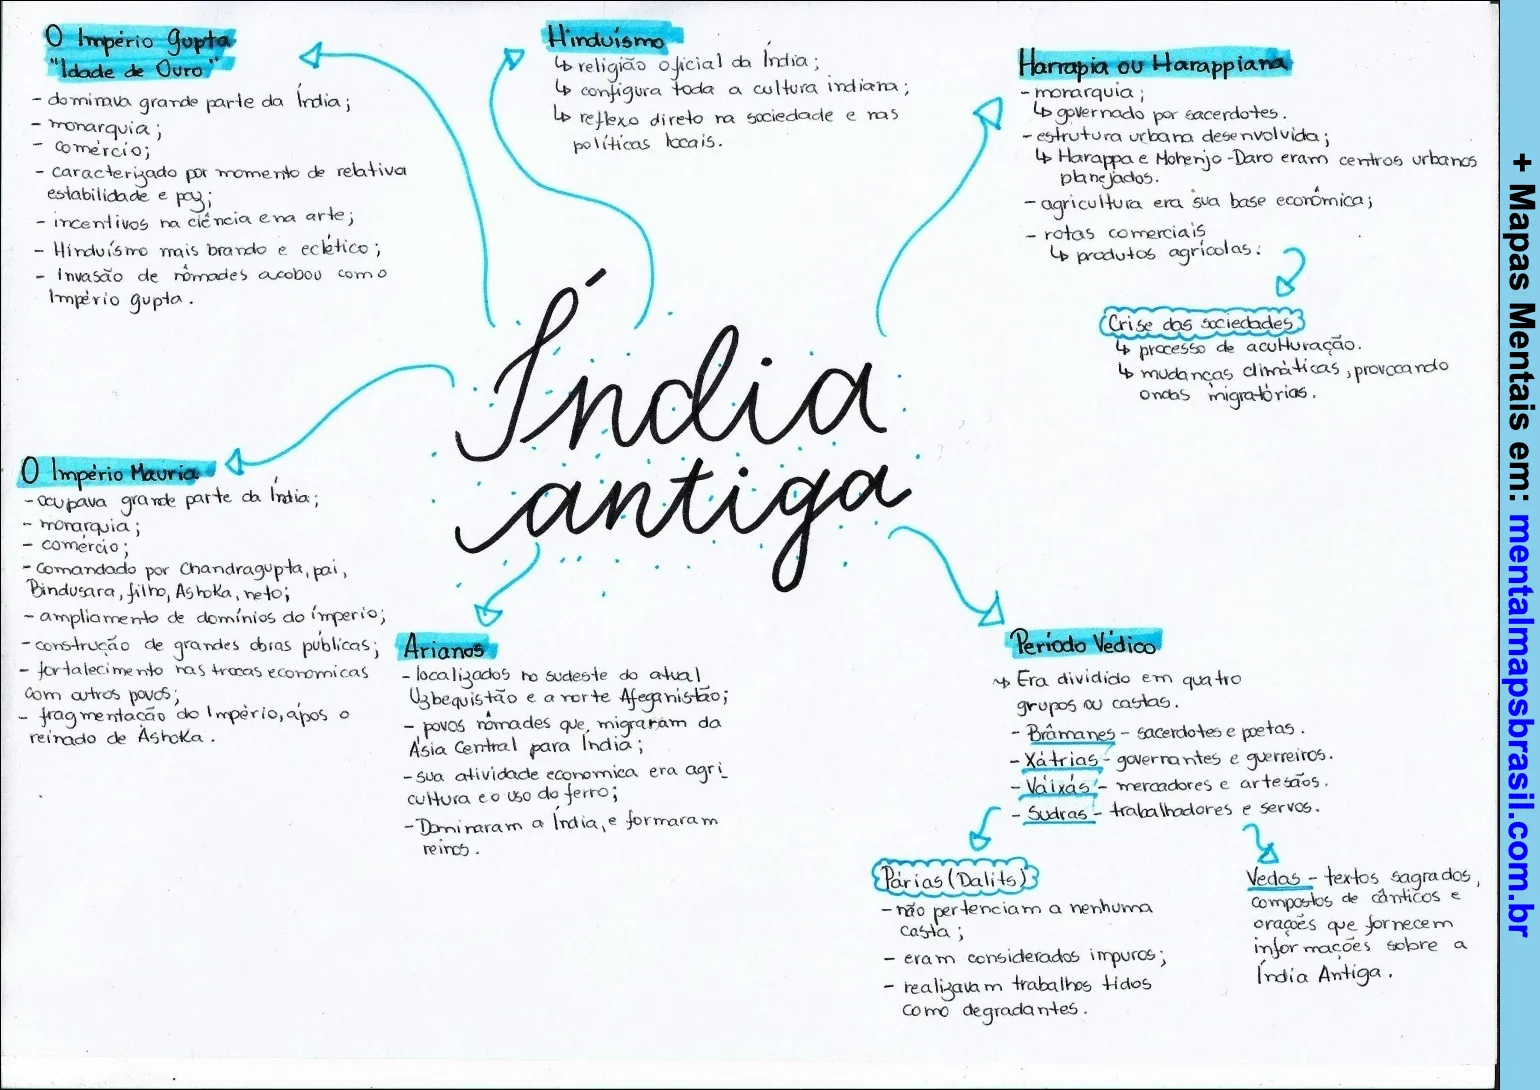 O Império Gupta
"Idade de Ouro"
- dominava grande parte da Índia;
- monarquia;
- comércio;
- caracterizado por momento de relativa
estabilidade e paz;
- incentivos na ciência e na arte;
- Hinduísmo mais brando e eclético;
- Invasão de nômades acabou com o
Império gupta.
Hinduísmo
↳ religião oficial da Índia;
↳ configura toda a cultura indiana;
↳ reflexo direto na sociedade e nas
políticas locais.
Harrapia ou Harappiana
- monarquia;
↳ governado por sacerdotes.
- estrutura urbana desenvolvida;
↳ Harappa e Mohenjo-Daro eram centros urbanos
planejados.
- agricultura era sua base econômica;
- rotas comerciais
↳ produtos agrícolas.
Crise das sociedades
↳ processo de aculturação.
↳ mudanças climáticas, provocando
ondas migratórias.
Índia
antiga
O Império Mauria
- ocupava grande parte da Índia;
- monarquia;
- comércio;
- comandado por Chandragupta, pai,
Bindusara, filho, Ashoka, neto;
- ampliamento de domínios do ímperio;
- construção de grandes obras públicas;
- fortalecimento nas trocas economicas
com outros povos;
- fragmentação do Império, após o
reinado de Ashoka.
Arianos
- localizados no sudeste do atual
Uzbequistão e a norte Afeganistão;
- povos nômades que, migraram da
Ásia Central para Índia;
- sua atividade economica era agri_
cultura e o uso do ferro;
- Dominaram a Índia, e formaram
reinos.
Período Védico
↳ Era dividido em quatro
grupos ou castas.
- Brâmanes - sacerdotes e poetas.
- Xátrias - governantes e guerreiros.
- Váixás - mercadores e artesãos.
- Sudras - trabalhadores e servos.
Párias (Dalits)
- não pertenciam a nenhuma
casta;
- eram considerados impuros;
- realizavam trabalhos tidos
como degradantes.
Vedas - textos sagrados,
compostos de cânticos e
orações que fornecem
informações sobre a
Índia Antiga.
+ Mapas Mentais em: mentalmapsbrasil.com.br